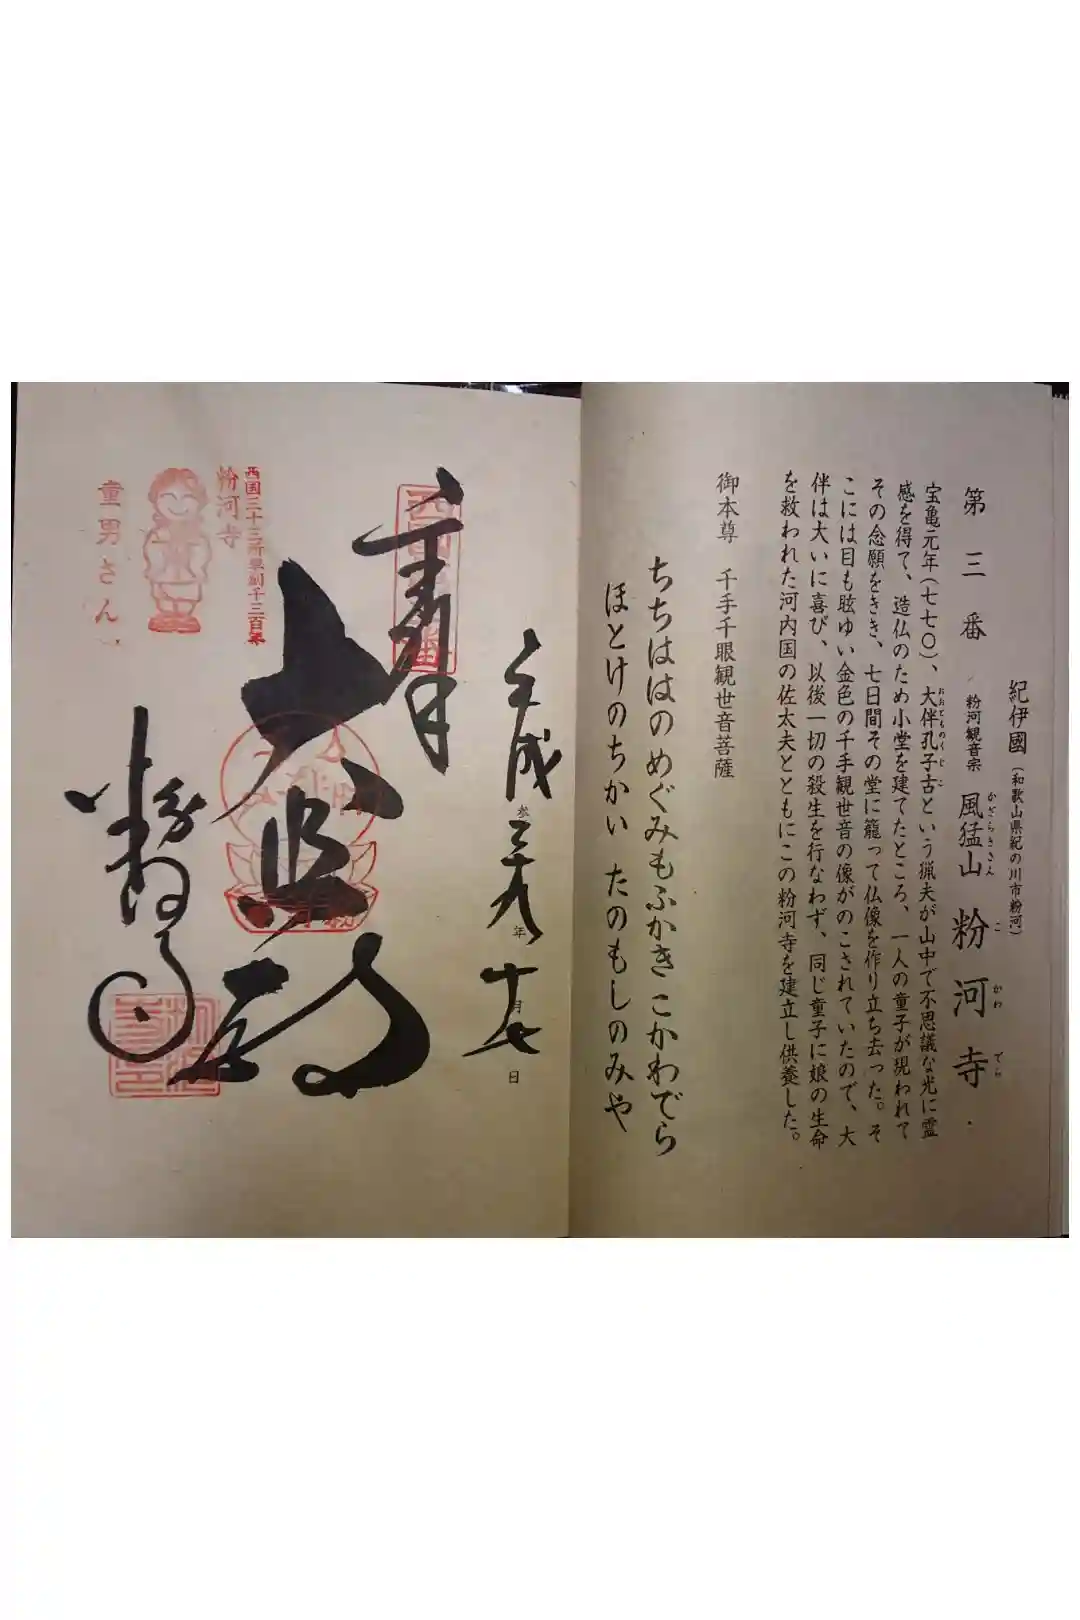 紀伊國（和歌山県紀の川市粉河）
第三番 粉河観音宗 風猛山 粉河寺
かざらきさん こ かわ でら
宝亀元年（七七〇）、大伴孔子古という猟夫が山中で不思議な光に霊
おおとものくじこ
感を得て、造仏のため小堂を建てたところ、一人の童子が現われて
その念願をきき、七日間その堂に籠って仏像を作り立ち去った。そ
こには目も眩ゆい金色の千手観世音の像がのこされていたので、大
伴は大いに喜び、以後一切の殺生を行なわず、同じ童子に娘の生命
を救われた河内国の佐太夫とともにこの粉河寺を建立し供養した。
御本尊 千手千眼観世音菩薩
ちちははのめぐみもふかきこかわでら
ほとけのちかい たのもしのみや
平成 参 二九 年 十 月 七 日
奉拝
大悲殿
粉河寺
西国三十三所草創千三百年
粉河寺
童男さん